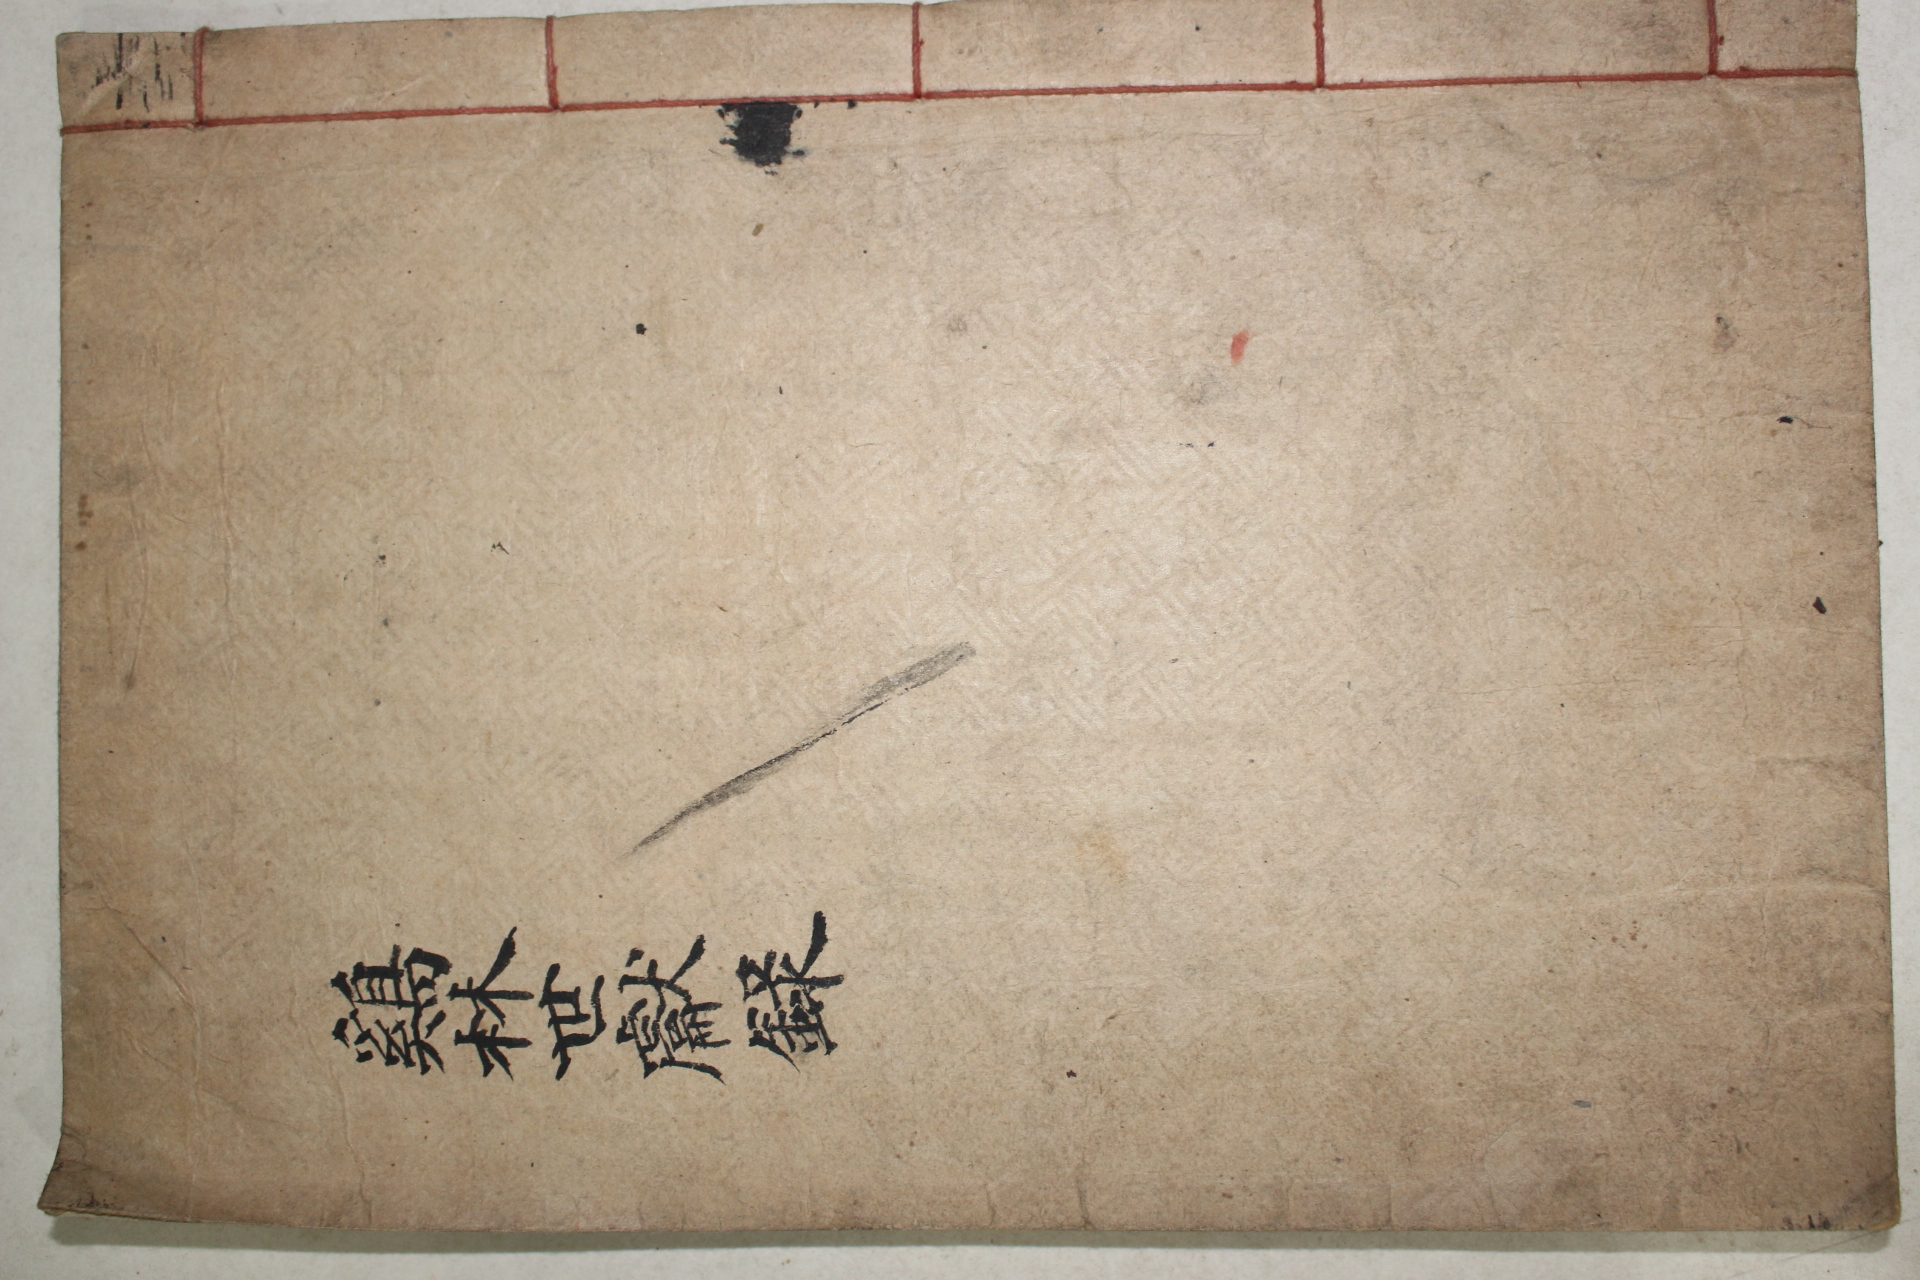 鷄林世獻錄